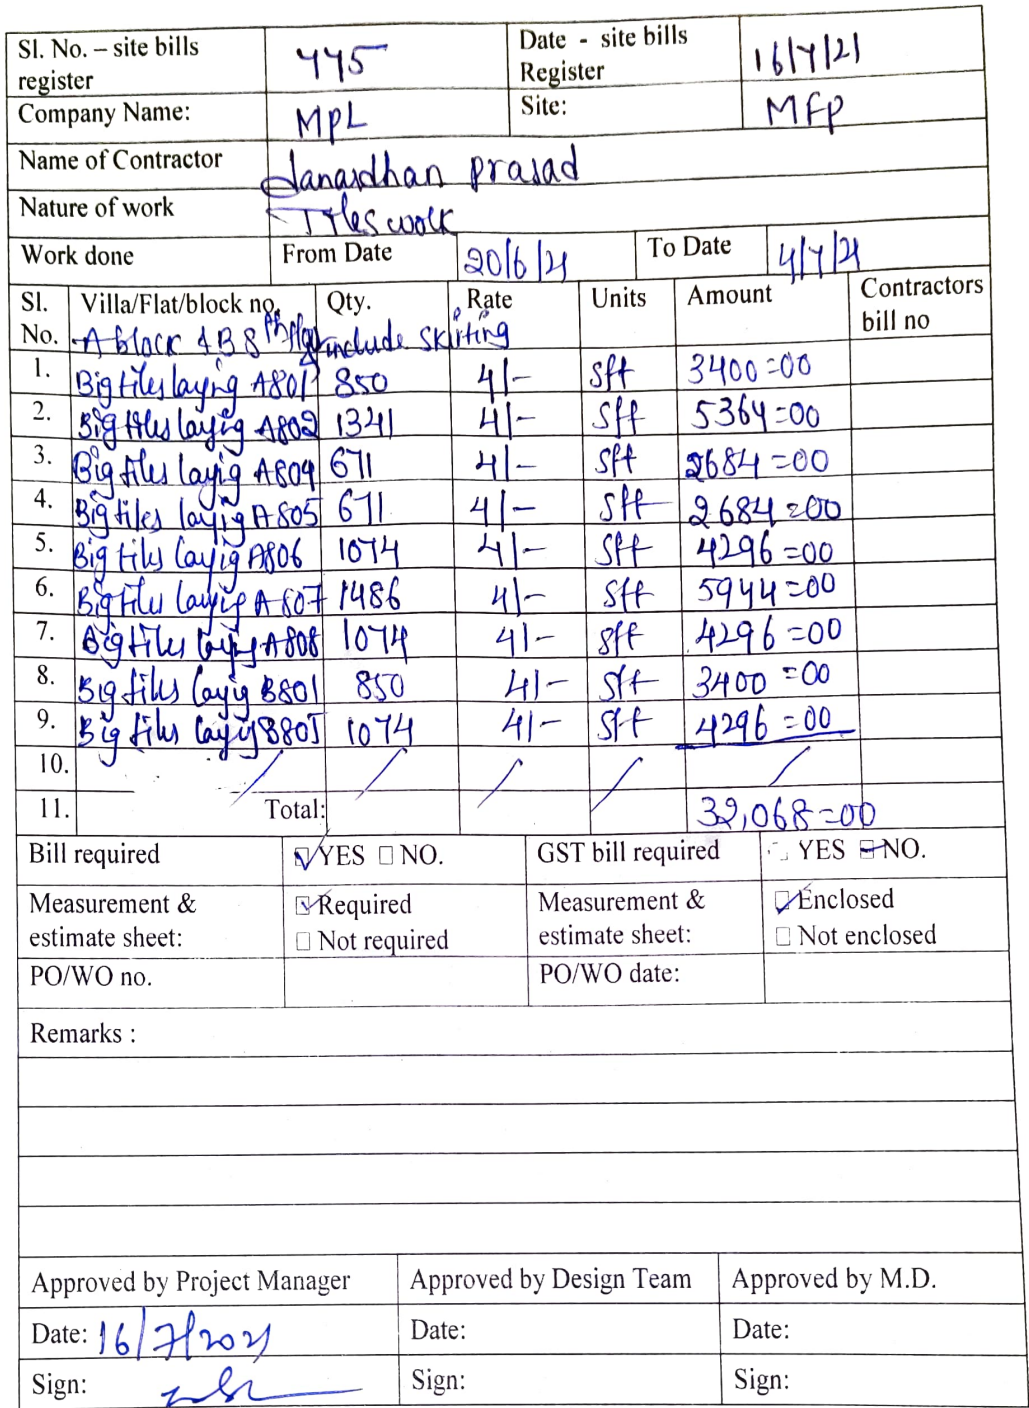 Sl. No. – site bills register 775 Date - site bills Register 16/7/21
Company Name: MPL Site: MFP
Name of Contractor Janardhan prasad
Nature of work Tiles work
Work done From Date 20/6/21 To Date 4/7/21
Sl. No. Villa/Flat/block no. Qty. Rate Units Amount Contractors bill no
A block & B 8th floor include skirting
1. Big tiles laying A801 850 4/- Sft 3400=00
2. Big tiles laying A802 1341 4/- Sft 5364=00
3. Big tiles laying A804 671 4/- Sft 2684=00
4. Big tiles laying A805 671 4/- Sft 2684=00
5. Big tiles layig A806 1074 4/- Sft 4296=00
6. Big tiles layig A807 1486 4/- Sft 5944=00
7. Big tiles layig A808 1074 4/- Sft 4296=00
8. Big tiles layig B801 850 4/- Sft 3400=00
9. Big tiles layig B805 1074 4/- Sft 4296=00
10.
11. Total: 32,068=00
Bill required YES NO. GST bill required YES NO.
Measurement & estimate sheet: Required Measurement & estimate sheet: Enclosed
Not required Not enclosed
PO/WO no. PO/WO date:
Remarks :
Approved by Project Manager Approved by Design Team Approved by M.D.
Date: 16/7/2021 Date: Date:
Sign: Sign: Sign: